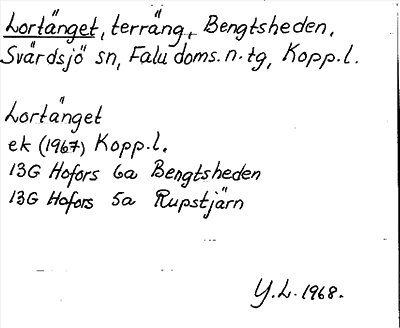 Lortänget, terräng, Bengtsheden,
Svärdsjö sn, Falu doms. n. tg, Kopp.l.
Lortänget
ek (1967) Kopp.l.
13G Hofors 6a Bengtsheden
13G Hofors 5a Rupstjärn
Y.L. 1968.